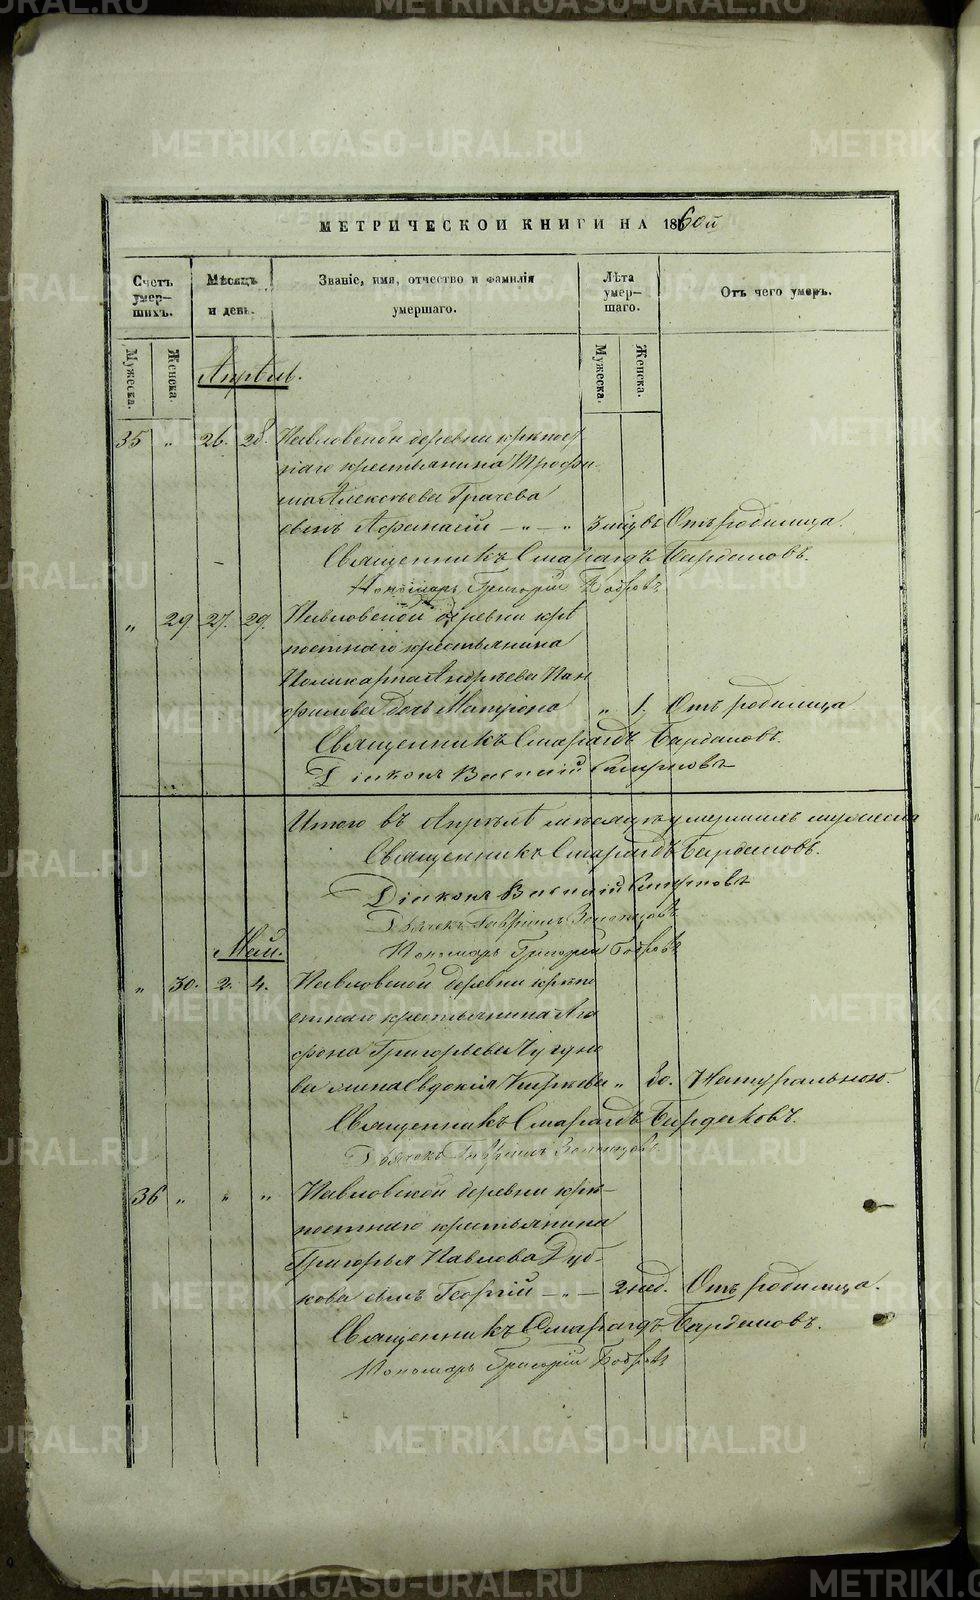 METRIKI.GASO-URAL.RU
МЕТРИЧЕСКОЙ КНИГИ НА 1860й
Счетъ умер-шихъ.
Мѣсяцъ и день.
Званіе, имя, отчество и фамилія умершаго.
Лѣта умер-шаго.
Отъ чего умеръ.
Мужеска.
Женска.
Мужеска.
Женска.
Апрѣль.
35 „ 26. 28. Павловской деревни крѣпост
наго крестьянина Трофи
ма Алексѣева Грачева
сынъ Афанасій — „ — „ Отъ родимца.
Священникъ Смарагдъ Бардаковъ.
Пономарь Григорій Бобровъ
„ 29 27. 29. Павловской деревни крѣ
постнаго крестьянина
Поликарпа Андрѣева Пан
филова дочь Матрона „ 1. Отъ родимца
Священникъ Смарагдъ Бардаковъ.
Діаконъ Василій Смирновъ
Итого въ Апрѣлѣ мѣсяцѣ умершихъ мужеска
Священникъ Смарагдъ Бардаковъ.
Діаконъ Василій Смирновъ
Дьячекъ Гавріилъ
Пономарь Григорій Бобровъ
Май.
„ 30. 2. 4. Павловской деревни крѣпо
стнаго крестьянина Ага
фона Григорьева Чугуно
ва жена Евдокія „ 30. Натуральною.
Священникъ Смарагдъ Бардаковъ.
Дьячекъ Гавріилъ
36 „ „ „ Павловской деревни крѣ-
постнаго крестьянина
Григорья Павлова Дуб-
кова сынъ Георгій — „ — 2 нед. Отъ родимца.
Священникъ Смарагдъ Бардаковъ.
Пономарь Григорій Бобровъ